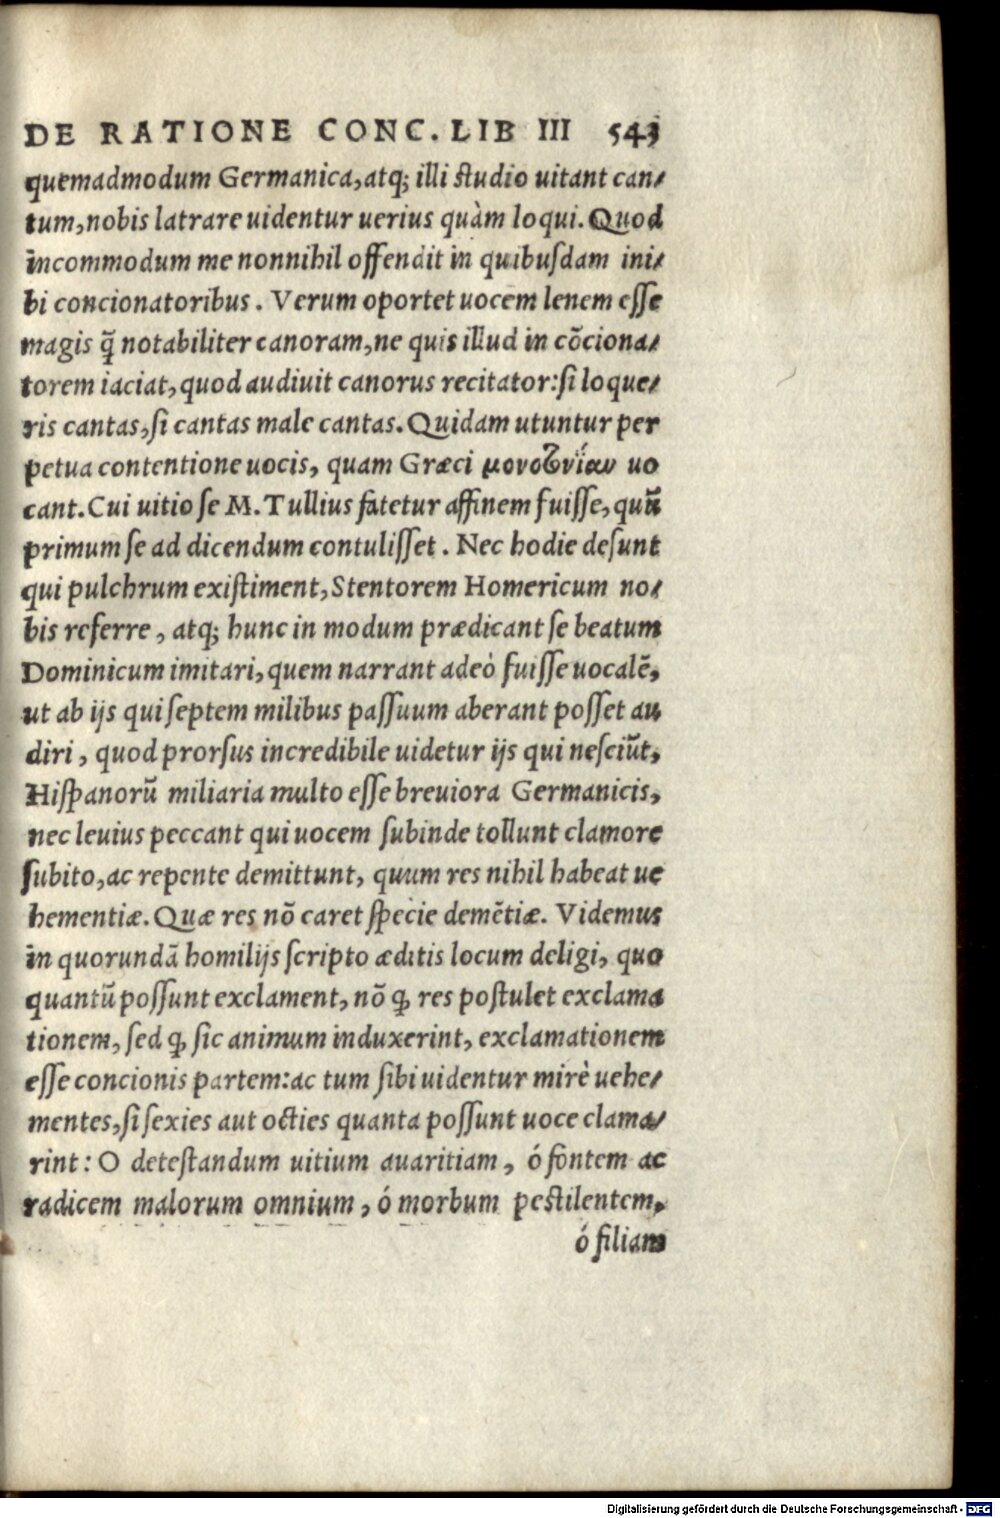 DE RATIONE CONC. LIB III 543
quemadmodum Germanica, atq; illi studio uitant can/
tum, nobis latrare uidentur uerius quàm loqui. Quod
incommodum me nonnihil offendit in quibusdam ini/
bi concionatoribus. Verum oportet uocem lenem esse
magis q̃ notabiliter canoram, ne quis illud in cõciona/
torem iaciat, quod audiuit canorus recitator: si loque/
ris cantas, si cantas male cantas. Quidam utuntur per
petua contentione uocis, quam Græci uo
cant. Cui uitio se M. Tullius fatetur affinem fuisse, quũ
primum se ad dicendum contulisset. Nec hodie desunt
qui pulchrum existiment, Stentorem Homericum no/
bis referre, atq; hunc in modum prædicant se beatum
Dominicum imitari, quem narrant adeò fuisse uocalẽ,
ut ab ijs qui septem milibus passuum aberant posset au
diri, quod prorsus incredibile uidetur ijs qui nesciũt,
Hispanorũ miliaria multo esse breuiora Germanicis,
nec leuius peccant qui uocem subinde tollunt clamore
subito, ac repente demittunt, quum res nihil habeat ue
hementiæ. Quæ res nõ caret specie demẽtiæ. Videmus
in quorundã homilijs scripto æditis locum deligi, quo
quantũ possunt exclament, nõ ꝙ res postulet exclama
tionem, sed ꝙ sic animum induxerint, exclamationem
esse concionis partem: ac tum sibi uidentur mirè uehe/
mentes, si sexies aut octies quanta possunt uoce clama/
rint: O detestandum uitium auaritiam, ó fontem ac
radicem malorum omnium, ó morbum pestilentem,
ó filiam
Digitalisierung gefördert durch die Deutsche Forschungsgemeinschaft - DFG